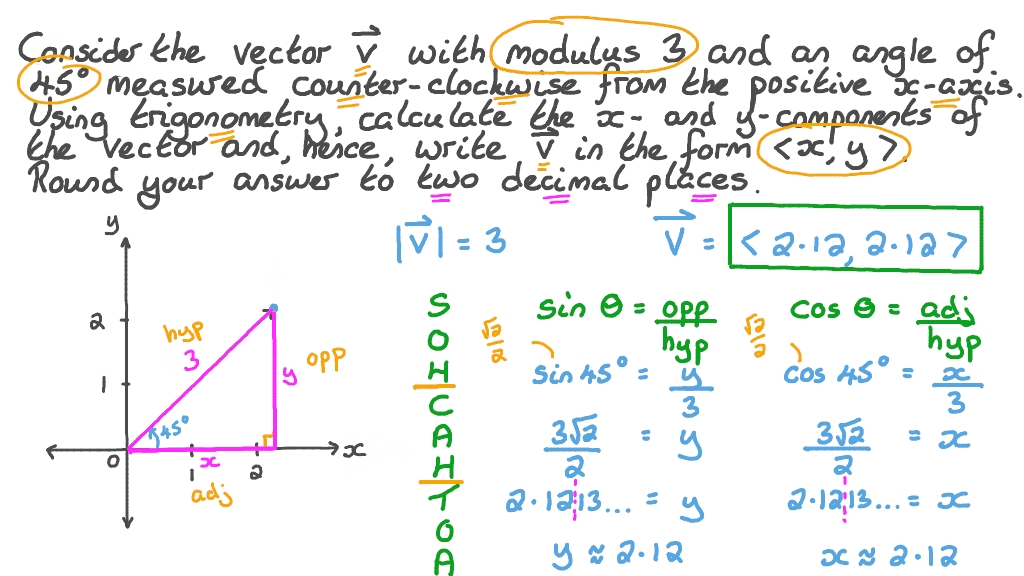 Consider the vector v⃗ with modulus 3 and an angle of
45° measured counter-clockwise from the positive x-axis.
Using trigonometry, calculate the x- and y-components of
the vector and, hence, write v⃗ in the form <x, y>.
Round your answer to two decimal places.
|v⃗| = 3
V⃗ = <2·12, 2·12>
y
2
1
0
1
2
x
hyp
3
45°
y
opp
x
adj
S
O
H
C
A
H
T
O
A
sin θ = opp/hyp
√2/2
sin 45° = y/3
3√2/2 = y
2·1213... = y
y ≈ 2·12
cos θ = adj/hyp
√2/2
cos 45° = x/3
3√2/2 = x
2·1213... = x
x ≈ 2·12